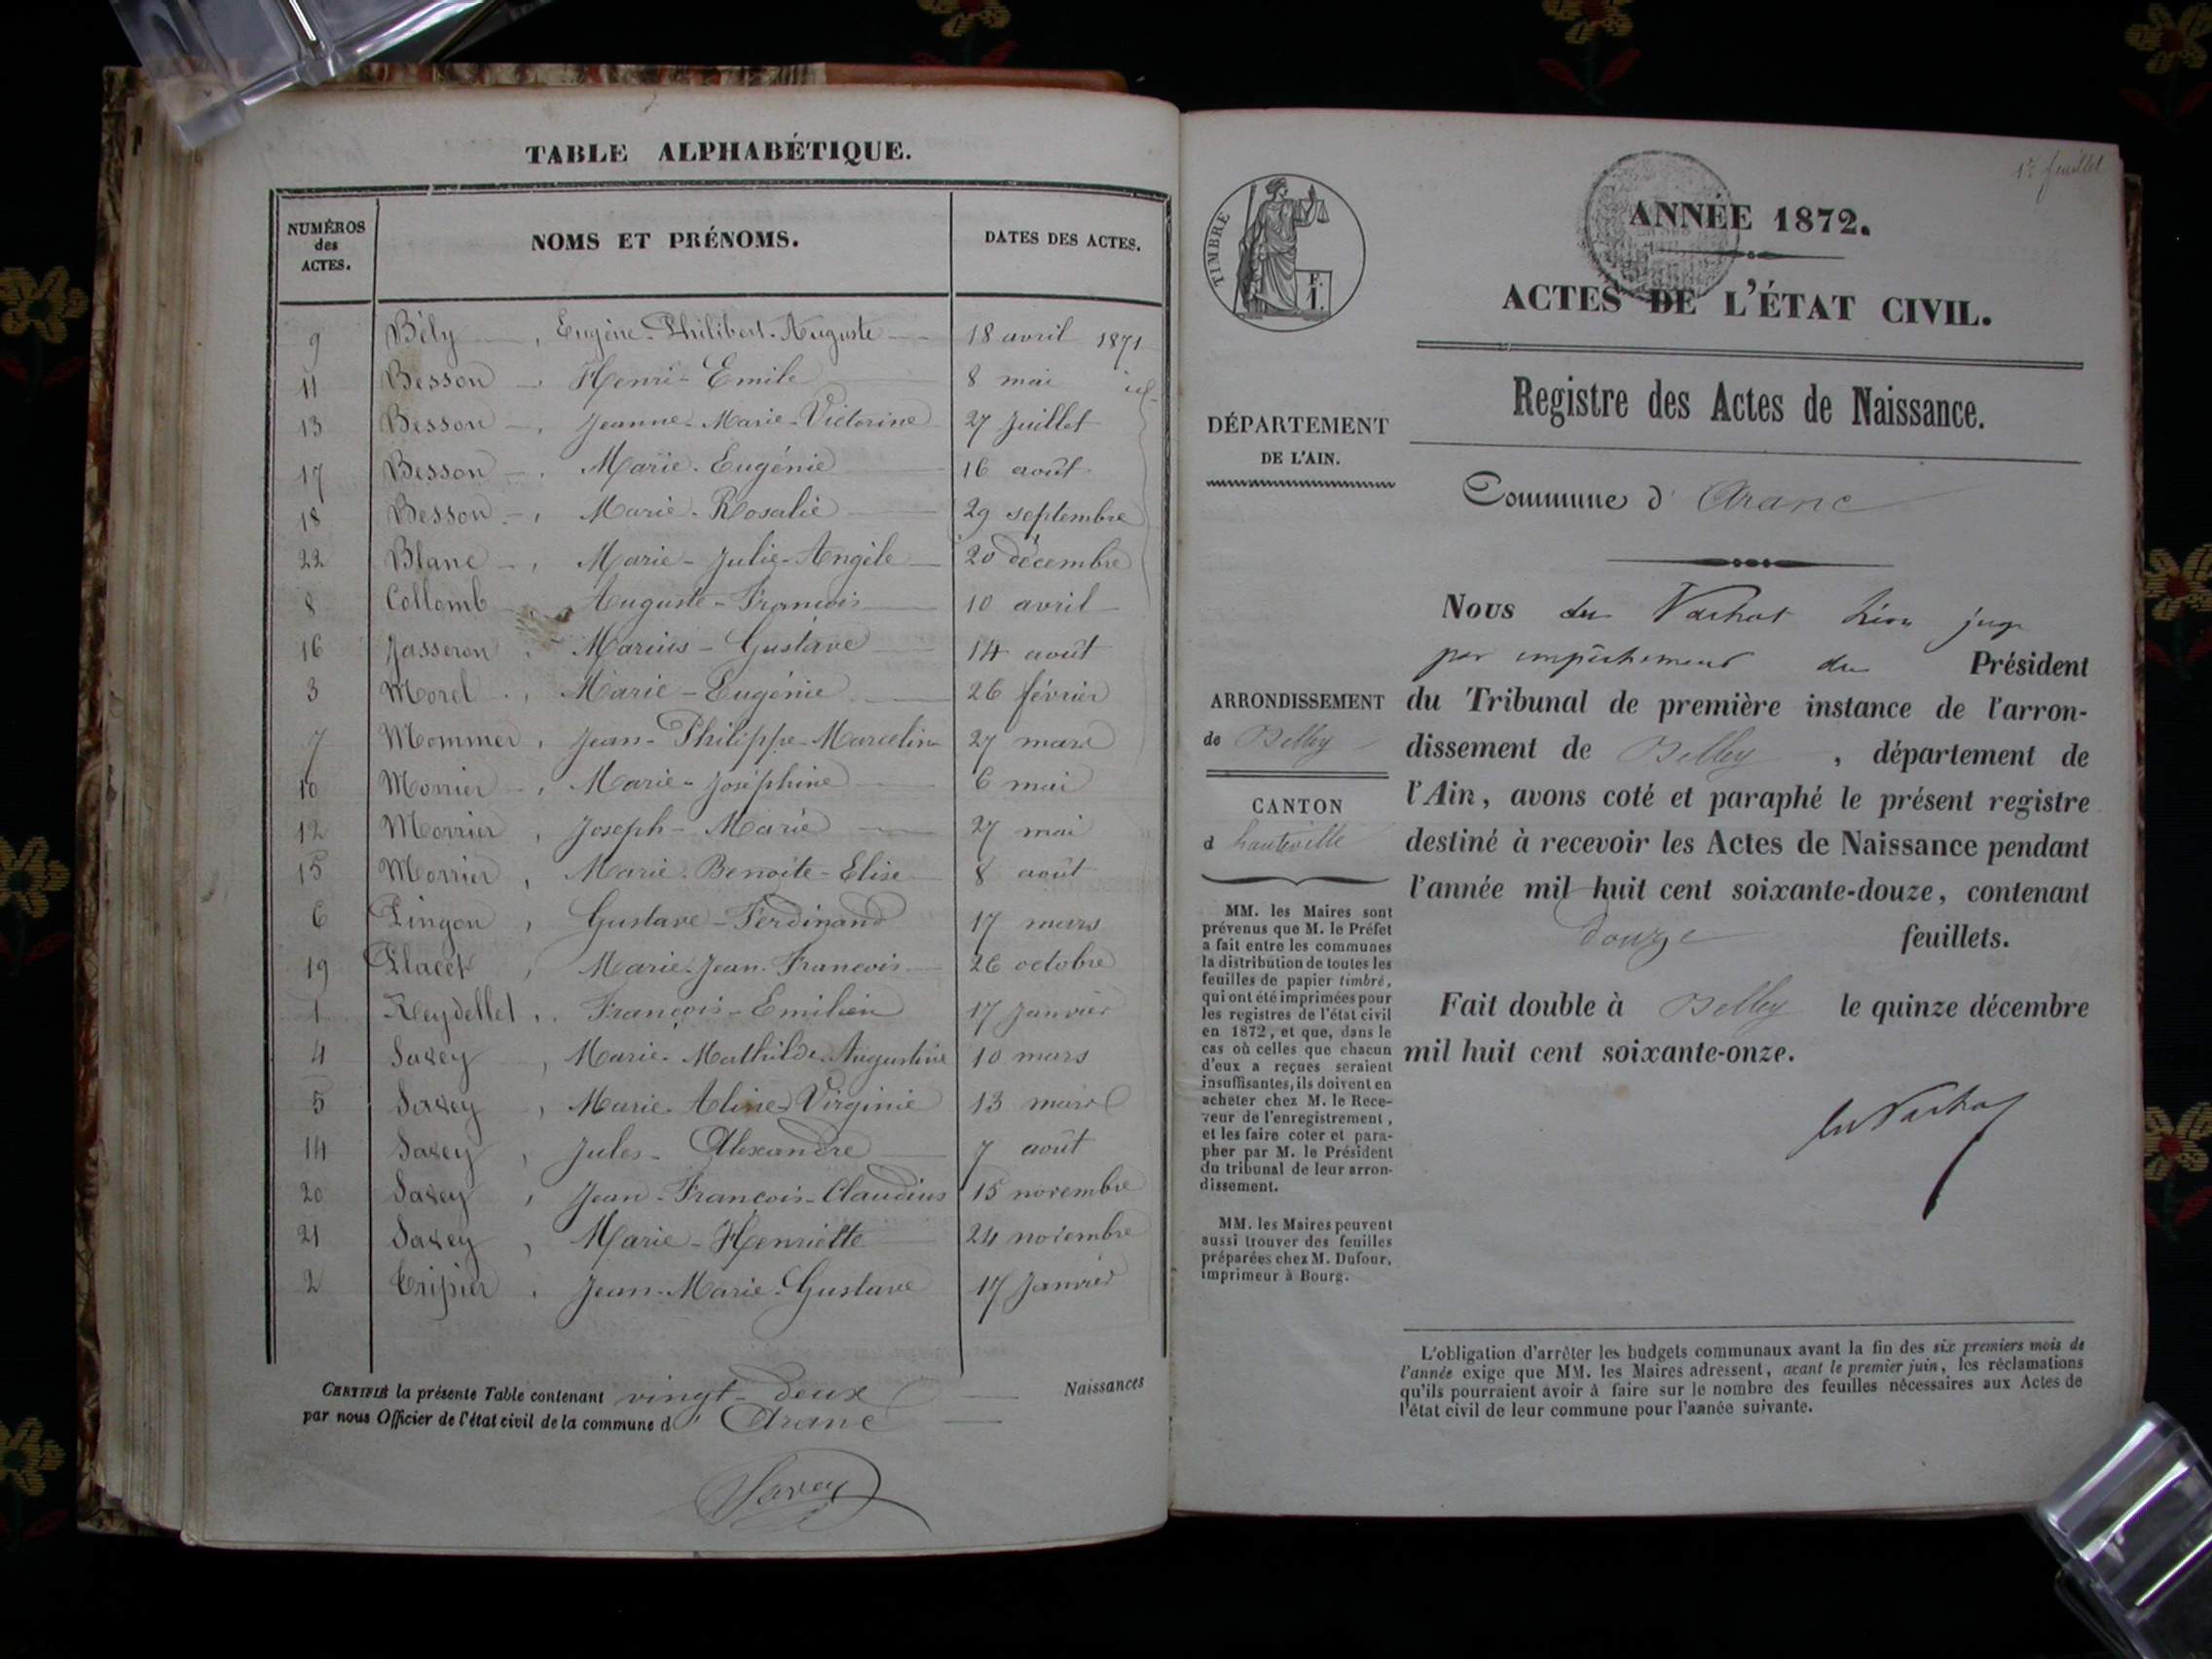 TABLE ALPHABÉTIQUE.
NUMÉROS des ACTES.
NOMS ET PRÉNOMS.
DATES DES ACTES.
9 Bély, Eugène-Philibert-Auguste 18 avril 1871
11 Besson, Henri-Emile 8 mai id
13 Besson, Jeanne-Marie-Victorine 27 Juillet
17 Besson, Marie-Eugénie 16 août
18 Besson, Marie-Rosalie 29 septembre
22 Blanc, Marie-Julie-Angèle 20 décembre
8 Collomb, Auguste-François 10 avril
16 Jasseron, Marius-Gustave 14 août
3 Morel, Marie-Eugénie 26 février
7 Mommer, Jean-Philippe-Marcelin 27 mars
10 Morrier, Marie-Joséphine 6 mai
12 Morrier, Joseph-Marie 27 mai
15 Morrier, Marie-Benoite-Elise 8 août
6 Pingon, Gustave-Ferdinand 17 mars
19 Placet, Marie-Jean-François 26 octobre
1 Reydellet, François-Emilien 17 Janvier
4 Savey, Marie-Mathilde-Augustine 10 mars
5 Savey, Marie-Aline-Virginie 13 mars
14 Savey, Jules-Alexandre 7 août
20 Savey, Jean-François-Claudius 15 novembre
21 Savey, Marie-Henriette 24 novembre
2 Tripier, Jean-Marie-Gustave 17 Janvier
CERTIFIÉ la présente Table contenant vingt-deux Naissances
par nous Officier de l'état civil de la commune d'Aranc
Savey
1er feuillet
TIMBRE
F.
1.
ANNÉE 1872.
ACTES DE L'ÉTAT CIVIL.
Registre des Actes de Naissance.
DÉPARTEMENT
DE L'AIN.
Commune d'Aranc
ARRONDISSEMENT
de Belley
CANTON
d hauteville
MM. les Maires sont
prévenus que M. le Préfet
a fait entre les communes
la distribution de toutes les
feuilles de papier timbré,
qui ont été imprimées pour
les registres de l'état civil
en 1872, et que, dans le
cas où celles que chacun
d'eux a reçues seraient
insuffisantes, ils doivent en
acheter chez M. le Rece-
veur de l'enregistrement,
et les faire coter et para-
pher par M. le Président
du tribunal de leur arron-
dissement.
MM. les Maires peuvent
aussi trouver des feuilles
préparées chez M. Dufour,
imprimeur à Bourg.
Nous du Vachat Léon juge
par empêchement du Président
du Tribunal de première instance de l'arron-
dissement de Belley, département de
l'Ain, avons coté et paraphé le présent registre
destiné à recevoir les Actes de Naissance pendant
l'année mil huit cent soixante-douze, contenant
douze feuillets.
Fait double à Belley le quinze décembre
mil huit cent soixante-onze.
du Vachat
L'obligation d'arrêter les budgets communaux avant la fin des six premiers mois de
l'année exige que MM. les Maires adressent, avant le premier juin, les réclamations
qu'ils pourraient avoir à faire sur le nombre des feuilles nécessaires aux Actes de
l'état civil de leur commune pour l'année suivante.